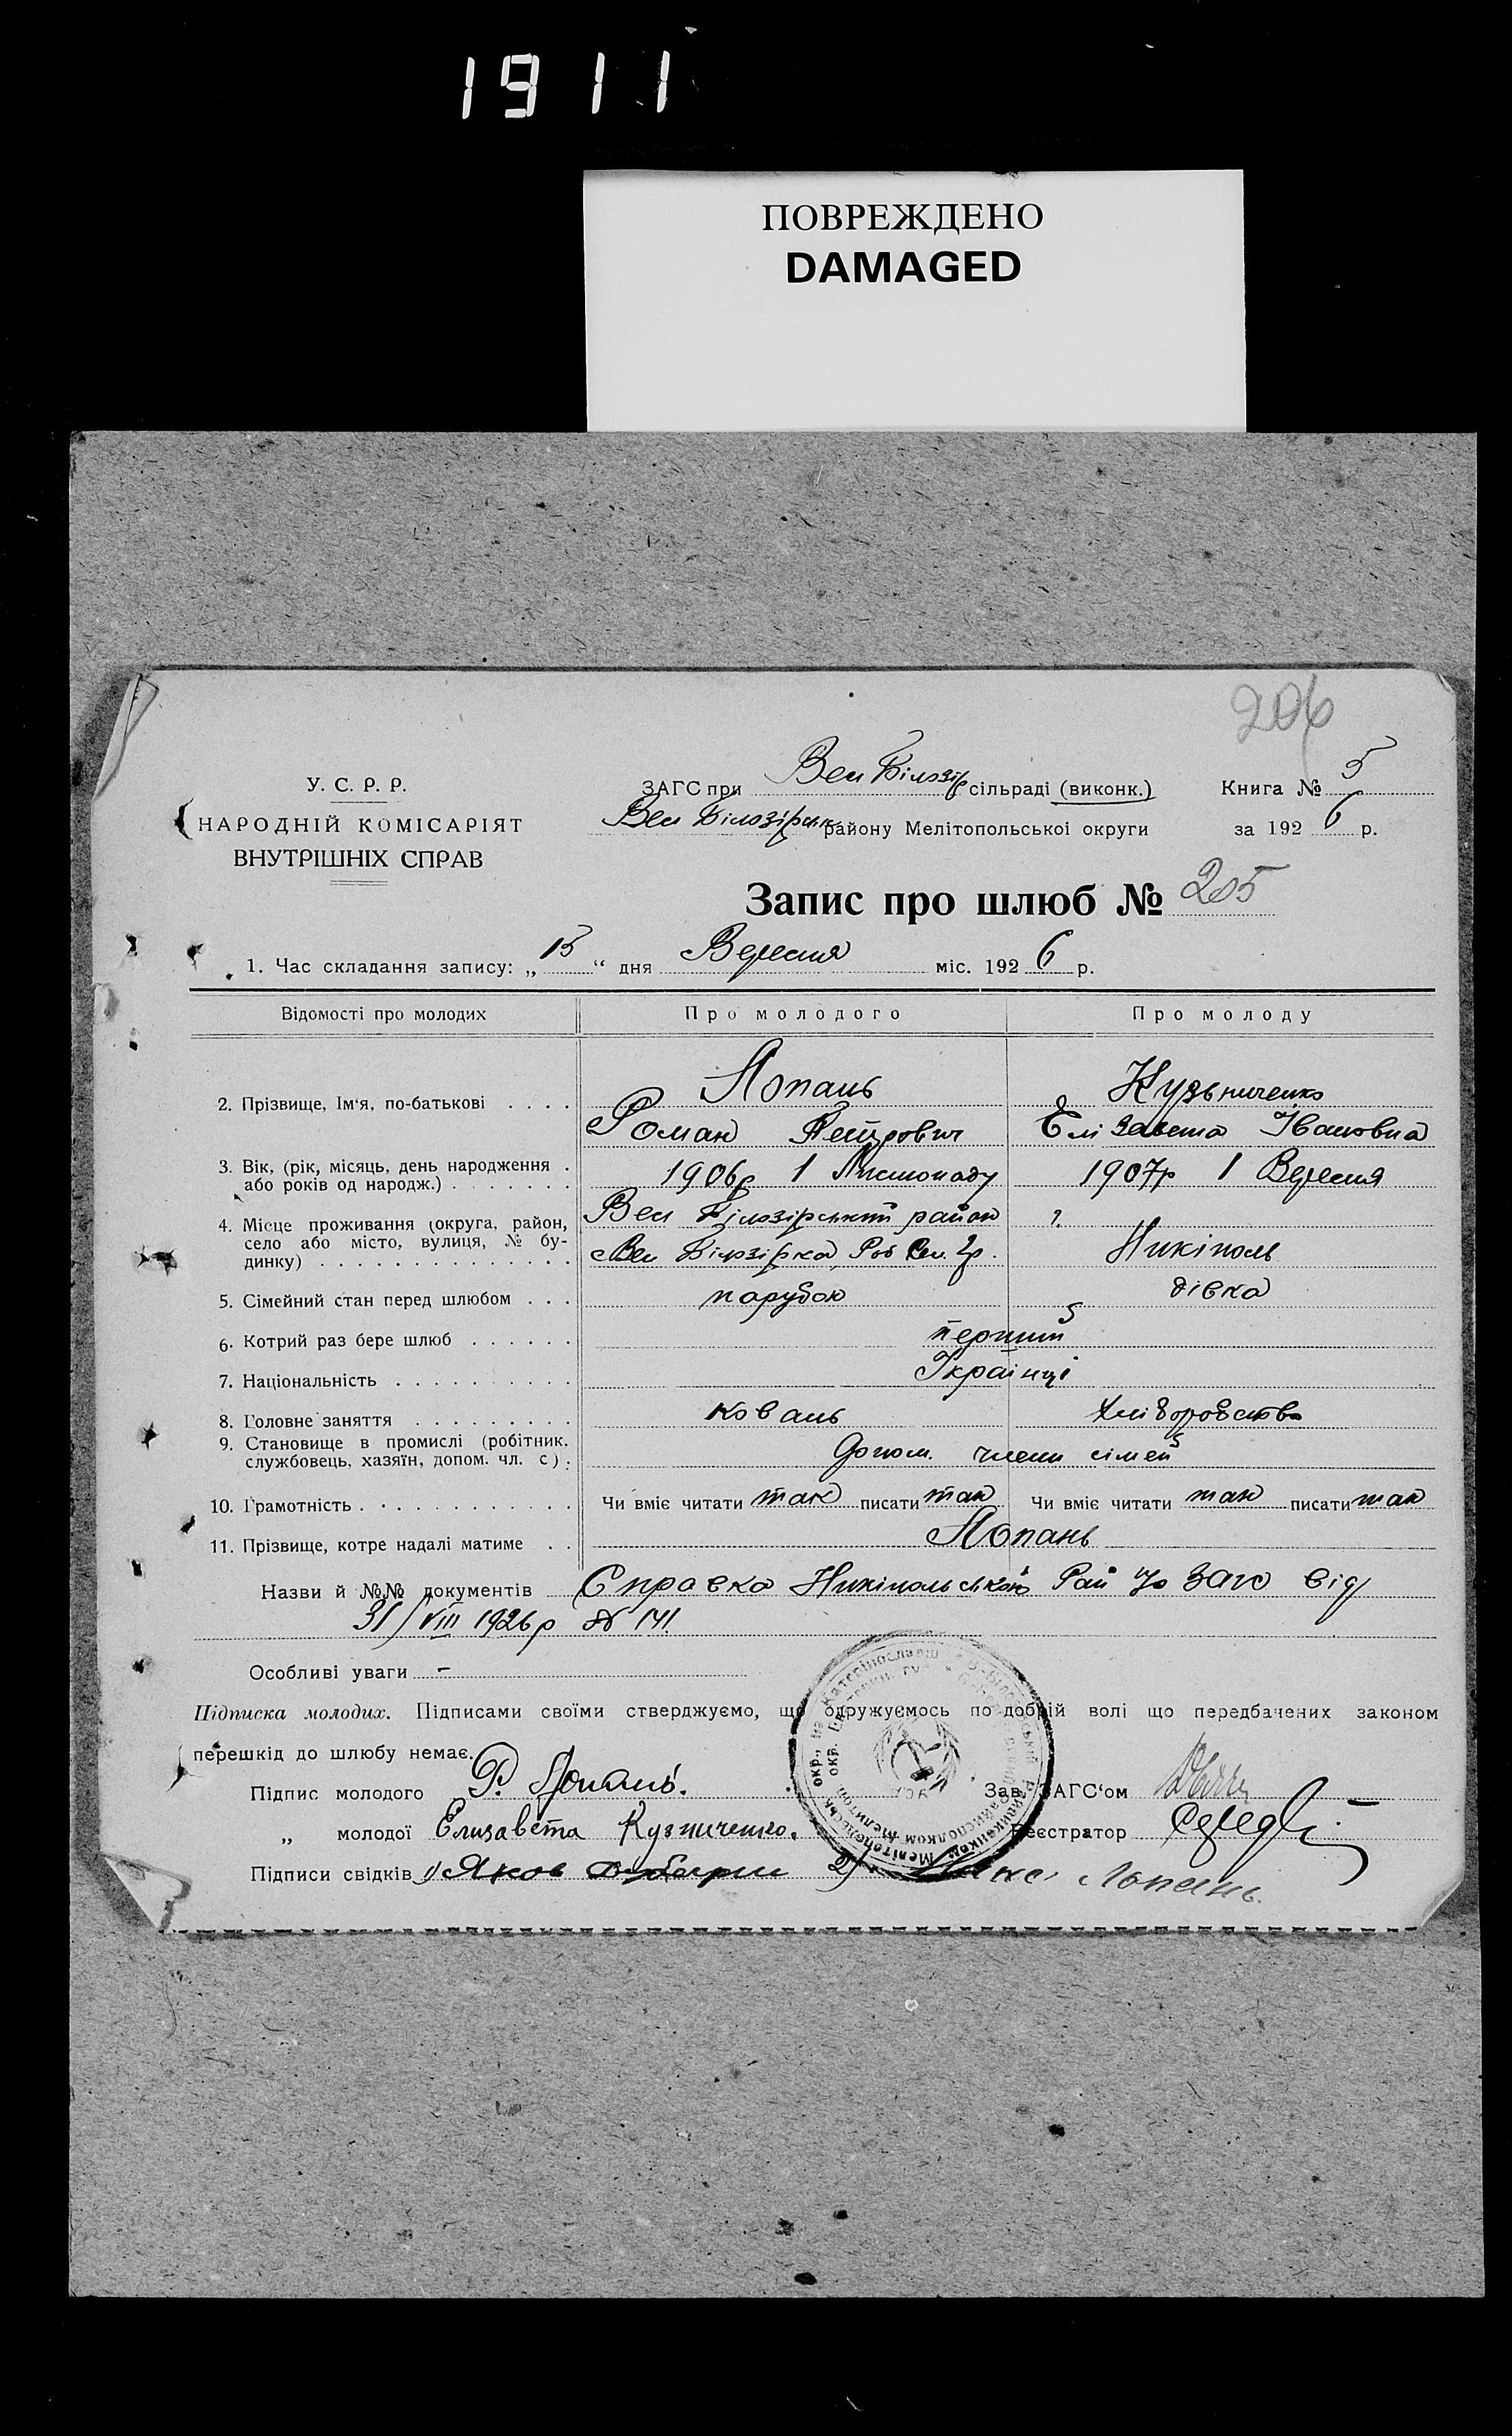 1911
ПОВРЕЖДЕНО
DAMAGED
206
У. С. Р. Р.
НАРОДНІЙ КОМІСАРІЯТ
ВНУТРІШНІХ СПРАВ
ЗАГС при Вел Білозір сільраді (виконк.)
Вел Білозірськ району Мелітопольської округи
Книга № 5
за 1926 р.
Запис про шлюб № 205
1. Час складання запису: „13“ дня Вересня міс. 1926 р.
Відомості про молодих Про молодого Про молоду
2. Прізвище, Ім'я, по-батькові . . . . Лопань Кузьниченко
Роман Петрович Єлізавета Івановна
3. Вік, (рік, місяць, день народження . 1906р 1 Листопаду 1907р 1 Вересня
або років од народж.) . . . . . . .
4. Місце проживання (округа, район, Вел Білозірський район
село або місто, вулиця, № бу- Вел Білозірка, Роб Сел. Нікіполь
динку) . . . . . . . . . . . . . .
5. Сімейний стан перед шлюбом . . . парубок дівка
6. Котрий раз бере шлюб . . . . . . перший
7. Національність . . . . . . . . . . Українці
8. Головне заняття . . . . . . . . . коваль хліборобство
9. Становище в промислі (робітник, Допом. члени сімей
службовець, хазяїн, допом. чл. с) .
10. Грамотність . . . . . . . . . . . . Чи вміє читати так писати так Чи вміє читати так писати так
11. Прізвище, котре надалі матиме . . Лопань
Назви й №№ документів Справка Никіпольської Рай ЗАГС від
31/VIII 1926р № 141
Особливі уваги –
Підписка молодих. Підписами своїми стверджуємо, що одружуємось по добрій волі що передбачених законом
перешкід до шлюбу немає.
Підпис молодого Р. Лопань. Зав. ЗАГС'ом
„ молодої Елизавета Кузниченко. Реєстратор
Підписи свідків 1/ Яков 2/ Лопань.